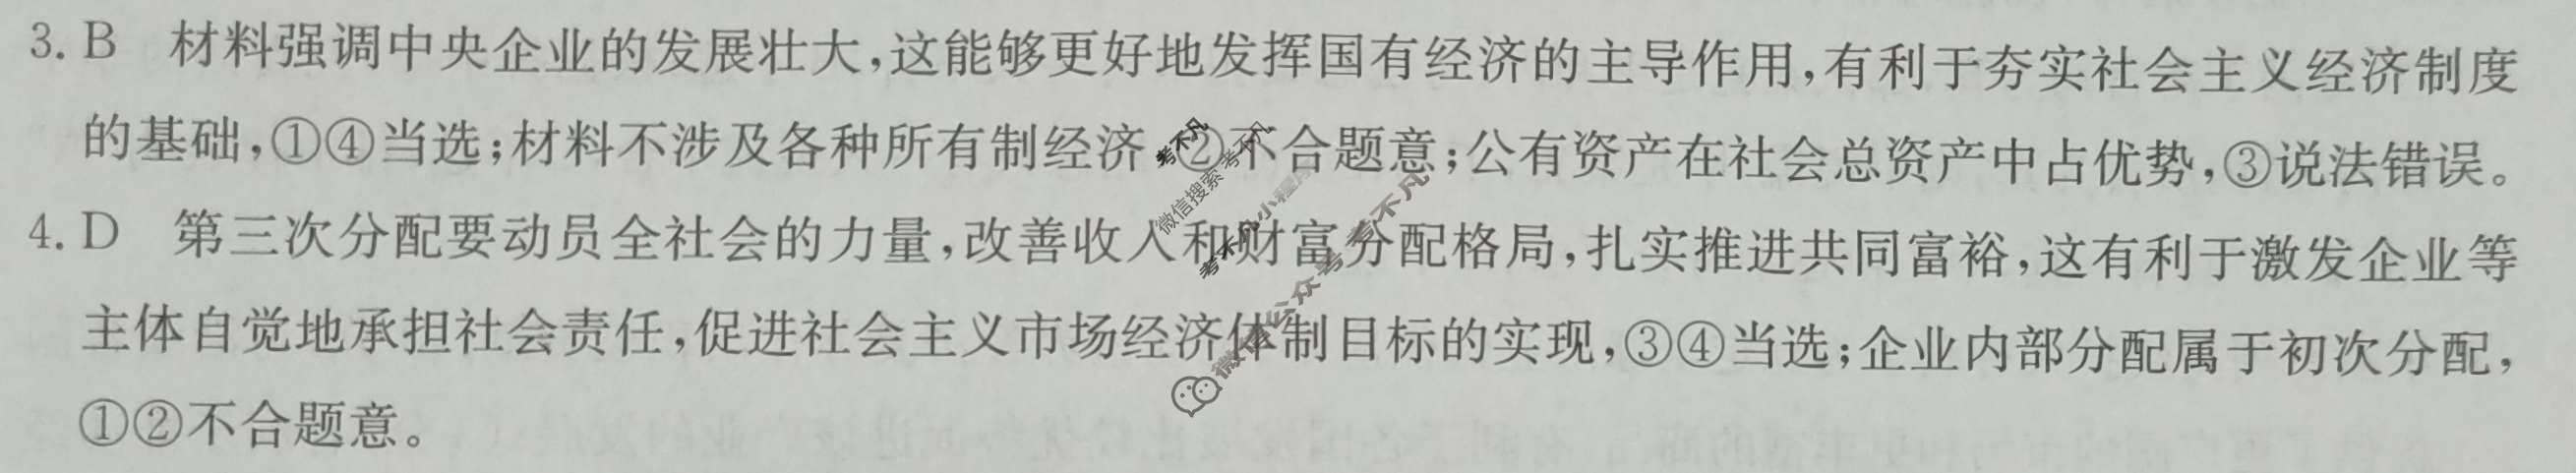 3. B 材料强调中央企业的发展壮大,这能够更好地发挥国有经济的主导作用,有利于夯实社会主义经济制度
的基础,①④当选;材料不涉及各种所有制经济,②不合题意;公有资产在社会总资产中占优势,③说法错误。
4. D 第三次分配要动员全社会的力量,改善收入和财富分配格局,扎实推进共同富裕,这有利于激发企业等
主体自觉地承担社会责任,促进社会主义市场经济体制目标的实现,③④当选;企业内部分配属于初次分配,
①②不合题意。
考不凡
微信搜索 考不凡
考不凡小程序
微信公众号 考不凡